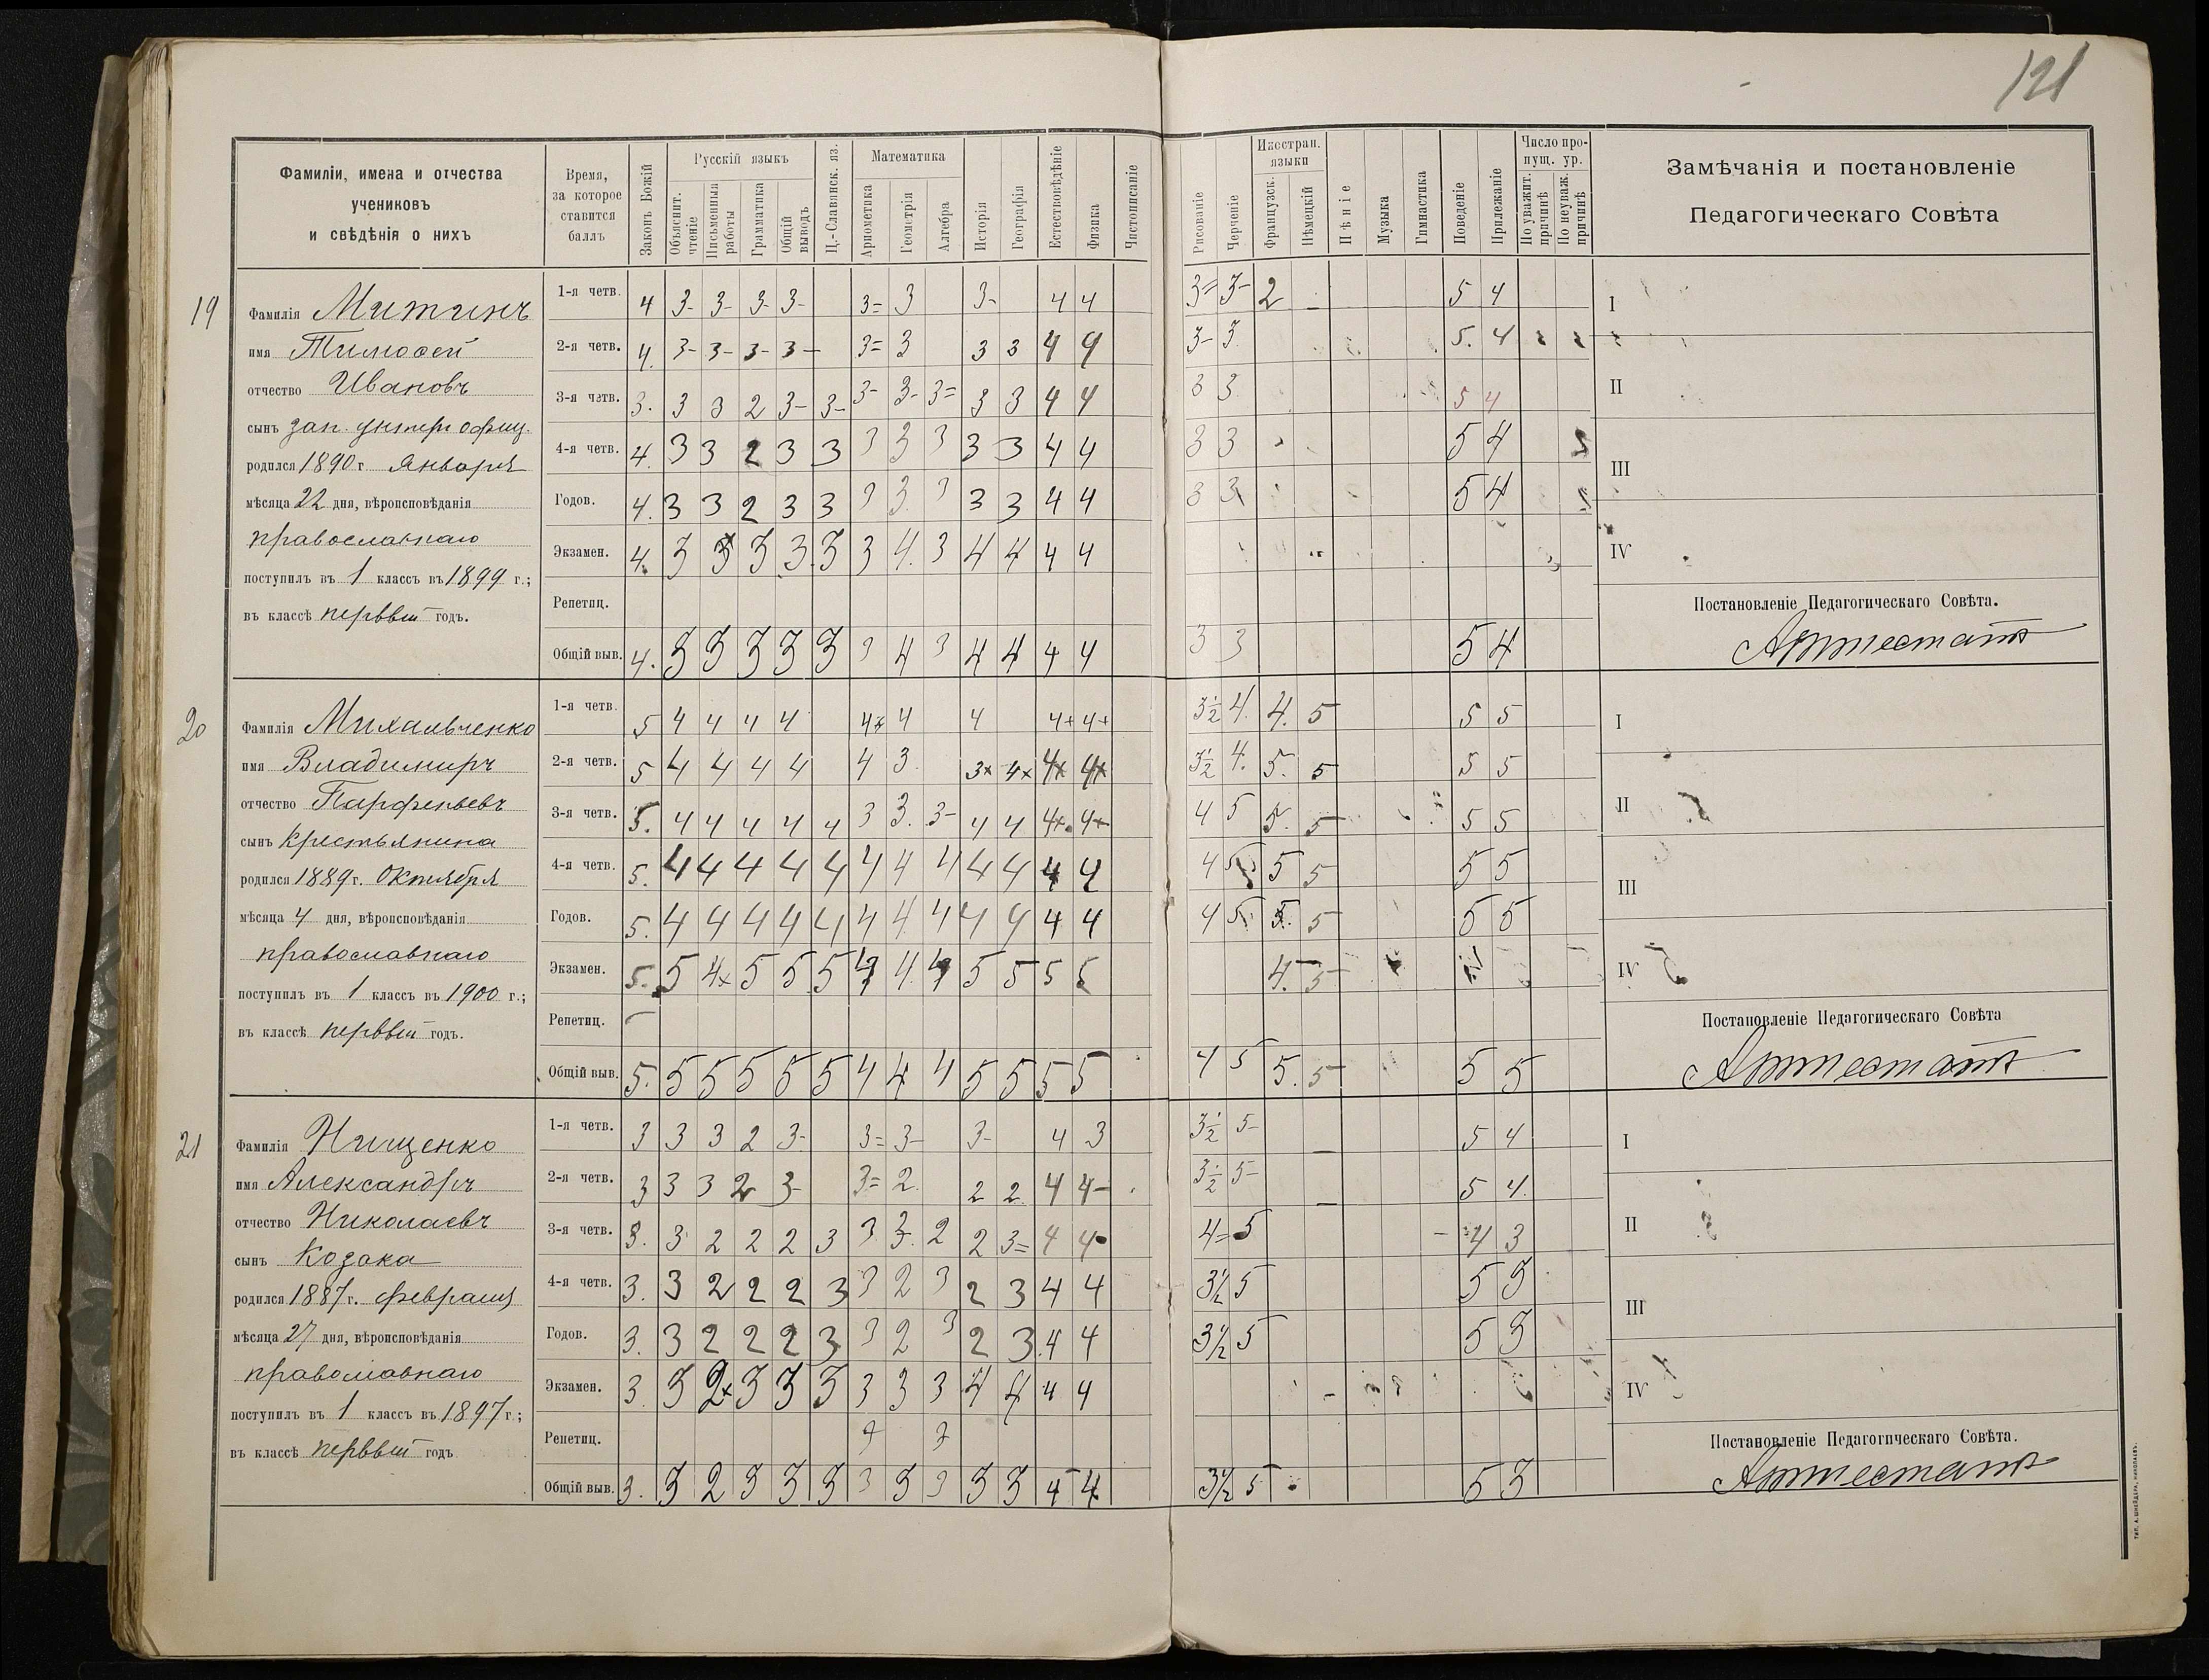 121
Фамиліи, имена и отчества
учениковъ
и свѣдѣнія о нихъ
Время,
за которое
ставится
баллъ
Законъ Божій
Русскій языкъ
Объяснит. чтеніе
Письменныя работы
Грамматика
Общій выводъ
Ц.-Славянск. яз.
Математика
Ариѳметика
Геометрія
Алгебра
Исторія
Географія
Естествовѣдѣніе
Физика
Чистописаніе
Рисованіе
Черченіе
Иностран. языки
Французск.
Нѣмецкій
Пѣніе
Музыка
Гимнастика
Поведеніе
Прилежаніе
Число пропущ. ур.
По уважит. причинѣ
По неуваж. причинѣ
Замѣчанія и постановленіе
Педагогическаго Совѣта
19
Фамилія Митинъ
имя Тимоѳей
отчество Ивановъ
сынъ зап. унтеръ офиц.
родился 1890 г. Января
мѣсяца 22 дня, вѣроисповѣданія
православнаго
поступилъ въ 1 классъ въ 1899 г.;
въ классѣ первый годъ.
1-я четв. 4 3- 3- 3- 3- 3= 3 3- 4 4 3= 3- 2 - 5 4
2-я четв. 4. 3- 3- 3- 3- 3= 3 3 3 4 4 3- 3 5. 4
3-я четв. 3. 3 3 2 3- 3- 3- 3- 3= 3 3 4 4 3 3 5 4
4-я четв. 4. 3 3 2 3 3 3 3 3 3 3 4 4 3 3 5 4
Годов. 4. 3 3 2 3 3 3 3 3 3 3 4 4 3 3 5 4
Экзамен. 4. 3 3 3 3 3 3 4. 3 4 4 4 4
Репетиц.
Общій выв. 4. 3 3 3 3 3 3 4 3 4 4 4 4 3 3 5 4
I
II
III
IV
Постановленіе Педагогическаго Совѣта.
Аттестатъ
20
Фамилія Михальченко
имя Владимиръ
отчество Парфеньевъ
сынъ Крестьянина
родился 1889 г. Октября
мѣсяца 4 дня, вѣроисповѣданія
православнаго
поступилъ въ 1 классъ въ 1900 г.;
въ классѣ первый годъ.
1-я четв. 5 4 4 4 4 4+ 4 4 4+ 4+ 3½ 4. 4. 5 5 5
2-я четв. 5 4 4 4 4 4 3 3+ 4+ 4+ 4+ 3½ 4. 5. 5 5 5
3-я четв. 5. 4 4 4 4 4 3 3. 3- 4 4 4+ 4+ 4 5 5. 5 5 5
4-я четв. 5. 4 4 4 4 4 4 4 4 4 4 4 4 4 5 5 5 5 5
Годов. 5. 4 4 4 4 4 4 4 4 4 4 4 4 4 5 5. 5 5 5
Экзамен. 5. 5 4+ 5 5 5 4 4. 4 5 5 5 5 4. 5
Репетиц.
Общій выв. 5. 5 5 5 5 5 4 4 4 5 5 5 5 4 5 5. 5 5 5
I
II
III
IV
Постановленіе Педагогическаго Совѣта
Аттестатъ
21
Фамилія Нищенко
имя Александръ
отчество Николаевъ
сынъ Козака
родился 1887 г. февраля
мѣсяца 27 дня, вѣроисповѣданія
православнаго
поступилъ въ 1 классъ въ 1897 г.;
въ классѣ первый годъ
1-я четв. 3 3 3 2 3- 3= 3- 3- 4 3 3½ 5- - 5 4
2-я четв. 3 3 3 2 3- 3= 2. 2 2 4 4- 3½ 5- - 5 4.
3-я четв. 3. 3 2 2 2 3 3 3. 2 2 3= 4 4- 4= 5 4 3
4-я четв. 3. 3 2 2 2 3 3 2 3 2 3 4 4 3½ 5 5 3
Годов. 3. 3 2 2 2 3 3 2 3 2 3 4 4 3½ 5 5 3
Экзамен. 3 3 2+ 3 3 3 3 3 3 4 4 4 4
Репетиц. 3 3
Общій выв. 3. 3 2 3 3 3 3 3 3 3 3 4 4 3½ 5 5 3
I
II
III
IV
Постановленіе Педагогическаго Совѣта.
Аттестатъ
ТИП. А. ШНЕЙДЕРА, НИКОЛАЕВЪ.